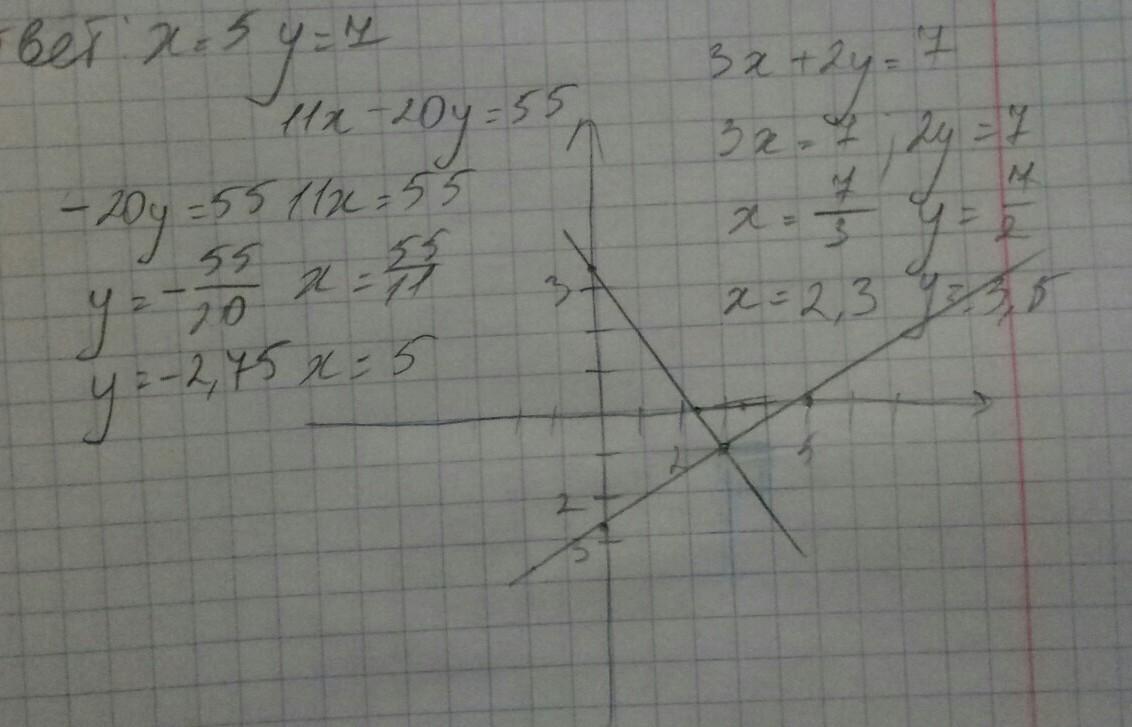 твет: x = 5 y = 7
11x - 20y = 55
-20y = 55 11x = 55
y = -55/20 x = 55/11
y = -2,75 x = 5
3x + 2y = 7
3x = 7; 2y = 7
x = 7/3 y = 7/2
x = 2,3 y = 3,5
3
2 5
2
3